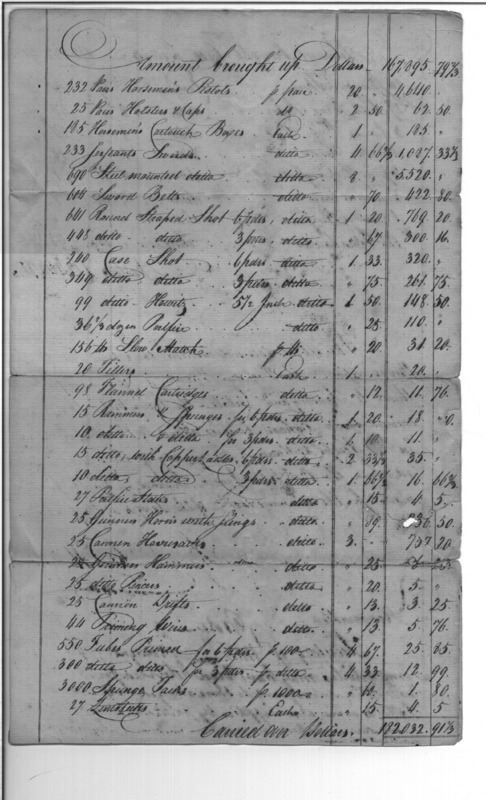 Amount brought up Dollars 167,095. 79 1/3
232 Pair Horsemens Pistols p pair 20 " 4640. "
25 Pair Holsters & Caps do 2 50. 62. 50.
185 Horsemens Cartouch Boxes Each 1 " 185. "
233 Serjeants Swords ditto 4 66 2/3 1,087. 33 1/3
690 Steel mounted ditto ditto 8 " 5.520. "
604 Sword Belts ditto " 70. 422. 80.
641 Round Straped Shot 6 pdrs. ditto 1 20. 769. 20.
448 ditto ditto 3 pdrs. ditto " 67. 300. 16.
240 Case Shot 6 pdrs ditto 1 33. 320. "
349 ditto ditto 3 pdrs. ditto " 75. 261. 75.
99 ditto Howitz 5 1/2 Inch ditto 1 50. 148. 50.
36 2/3 dozen Portfire ditto 25. 110. "
156 lb Slow Match p lb " 20. 31. 20.
20 Each 1 " 20. "
98 Flannel Cartridges ditto " 12. 11. 76.
15 Rammers & Sponges for 6 pdrs. ditto 1 20. 18.
10 ditto & ditto for 3 pdrs. ditto 1 10. 11. "
15 ditto with Copper Ladles 6 pdrs ditto 2 33 1/3 35. "
10 ditto ditto 3 pdrs. ditto 1 66 2/3 16. 66 2/3
27 Portfire Staffs ditto " 15. 4. 5.
25 Gunners Horns with slings ditto 50.
25 Cannon Haversacks ditto 3. 20.
Hammers ditto " 25.
25 ditto ditto " 20. 5. "
25 Cannon Drifts ditto " 13. 3. 25
44 Priming Wires ditto " 13. 5. 76.
550 Tubes Primed for 6 pdrs p 100 4 67. 25. 85.
300 ditto ditto for 3 pdrs p ditto 4 33. 12. 99
3000 Sponge Tacks p 1000 1. 80.
27 Linstocks Each " 15 4. 5.
Carried over Dollars. 182.032. 91 1/3